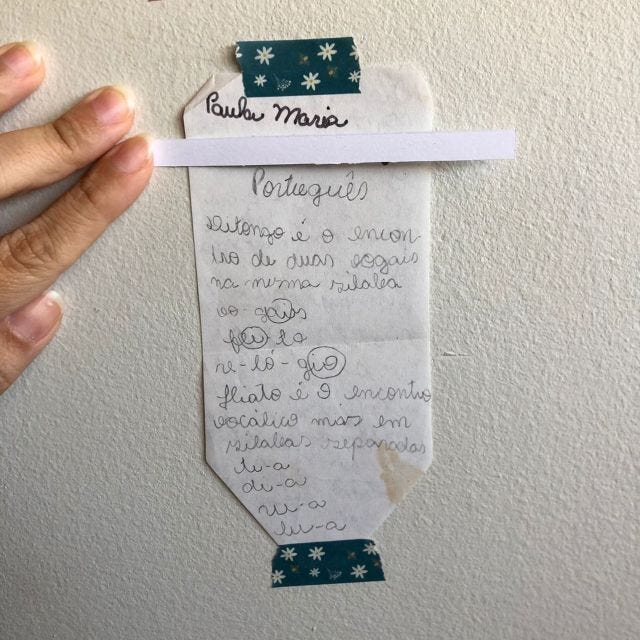 Paula Maria
Português
Ditongo é o encon-
tro de duas vogais
na mesma sílaba
vo-gais
fei-to
re-ló-gio
Hiato é o encontro
vocálico mas em
silabas separadas
lu-a
du-a
ru-a